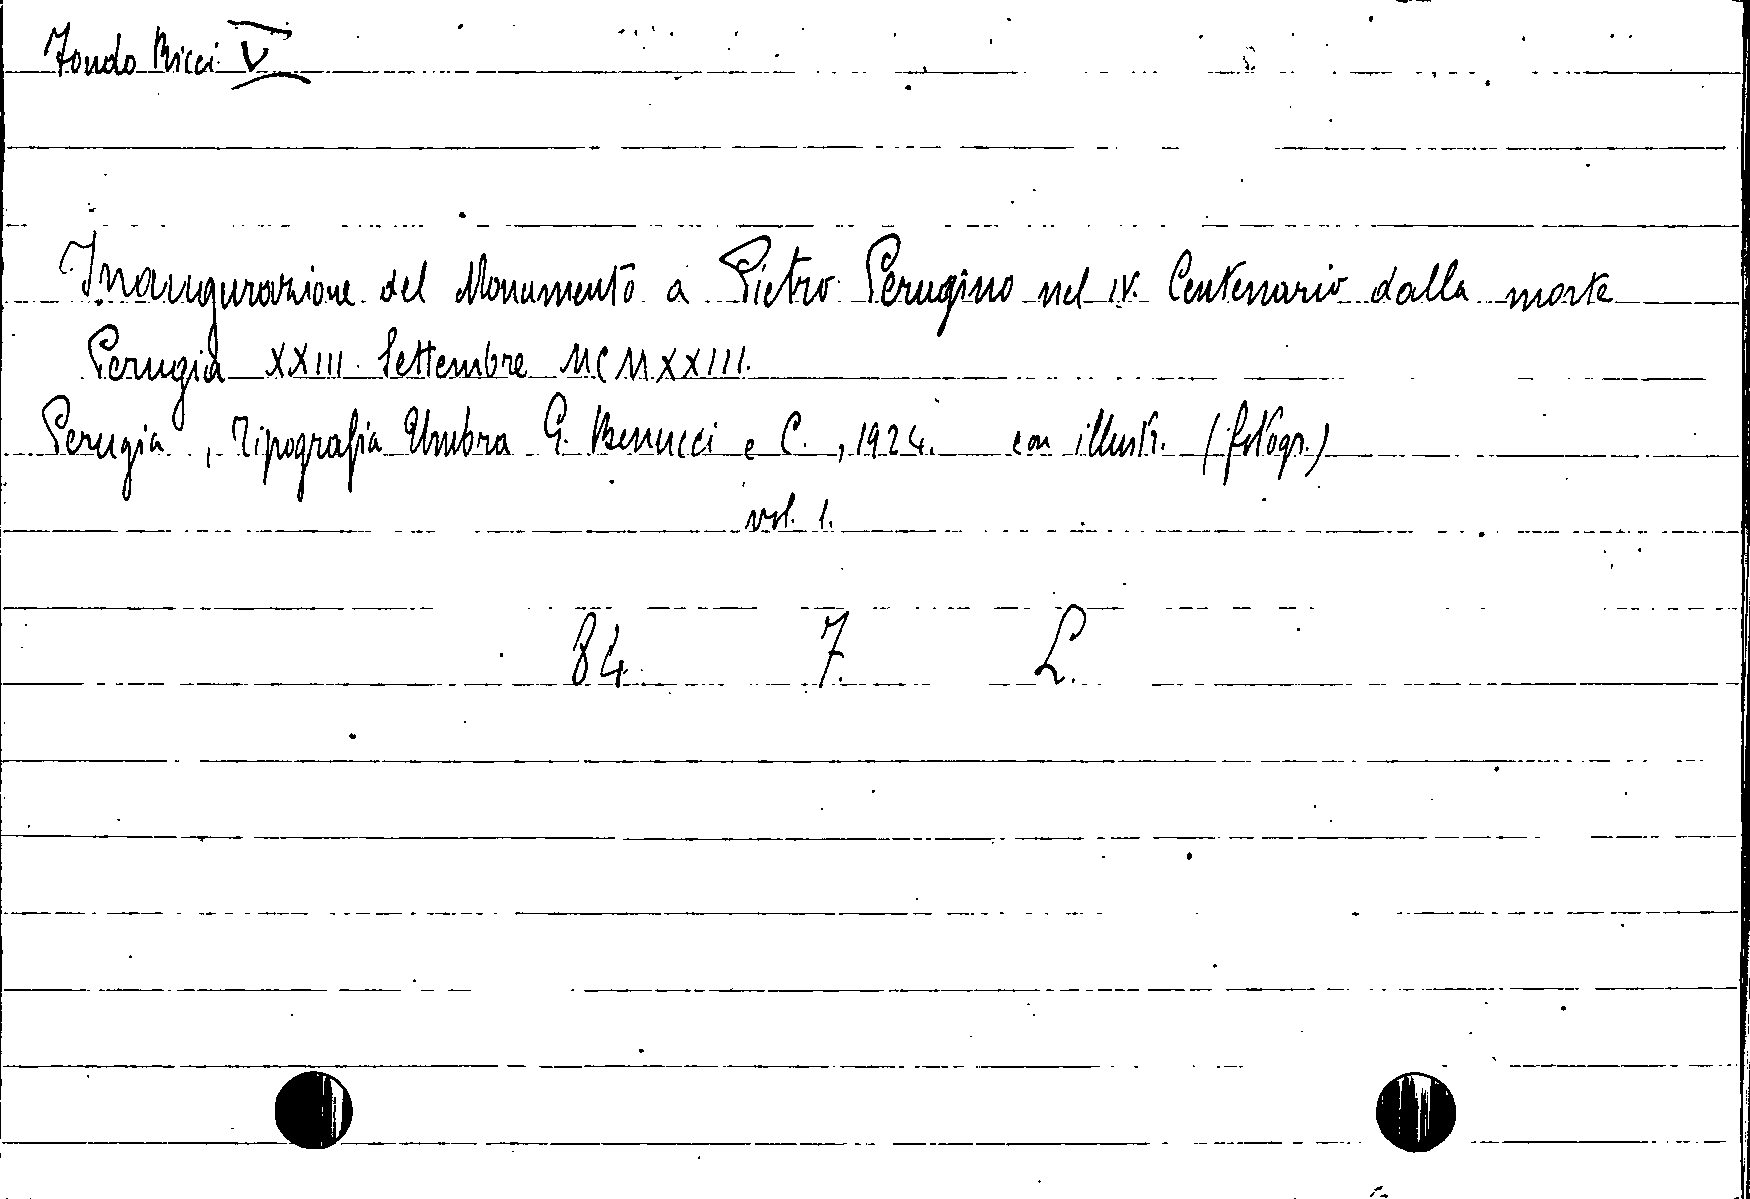 Fondo Ricci V
Inaugurazione del Monumento a Pietro Perugino nel IV. Centenario dalla morte
Perugia XXIII Settembre MCMXXIII.
Perugia, Tipografia Umbra G. Benucci e C., 1924. con illustr. (fotogr.)
vol. 1.
84. 7. L.